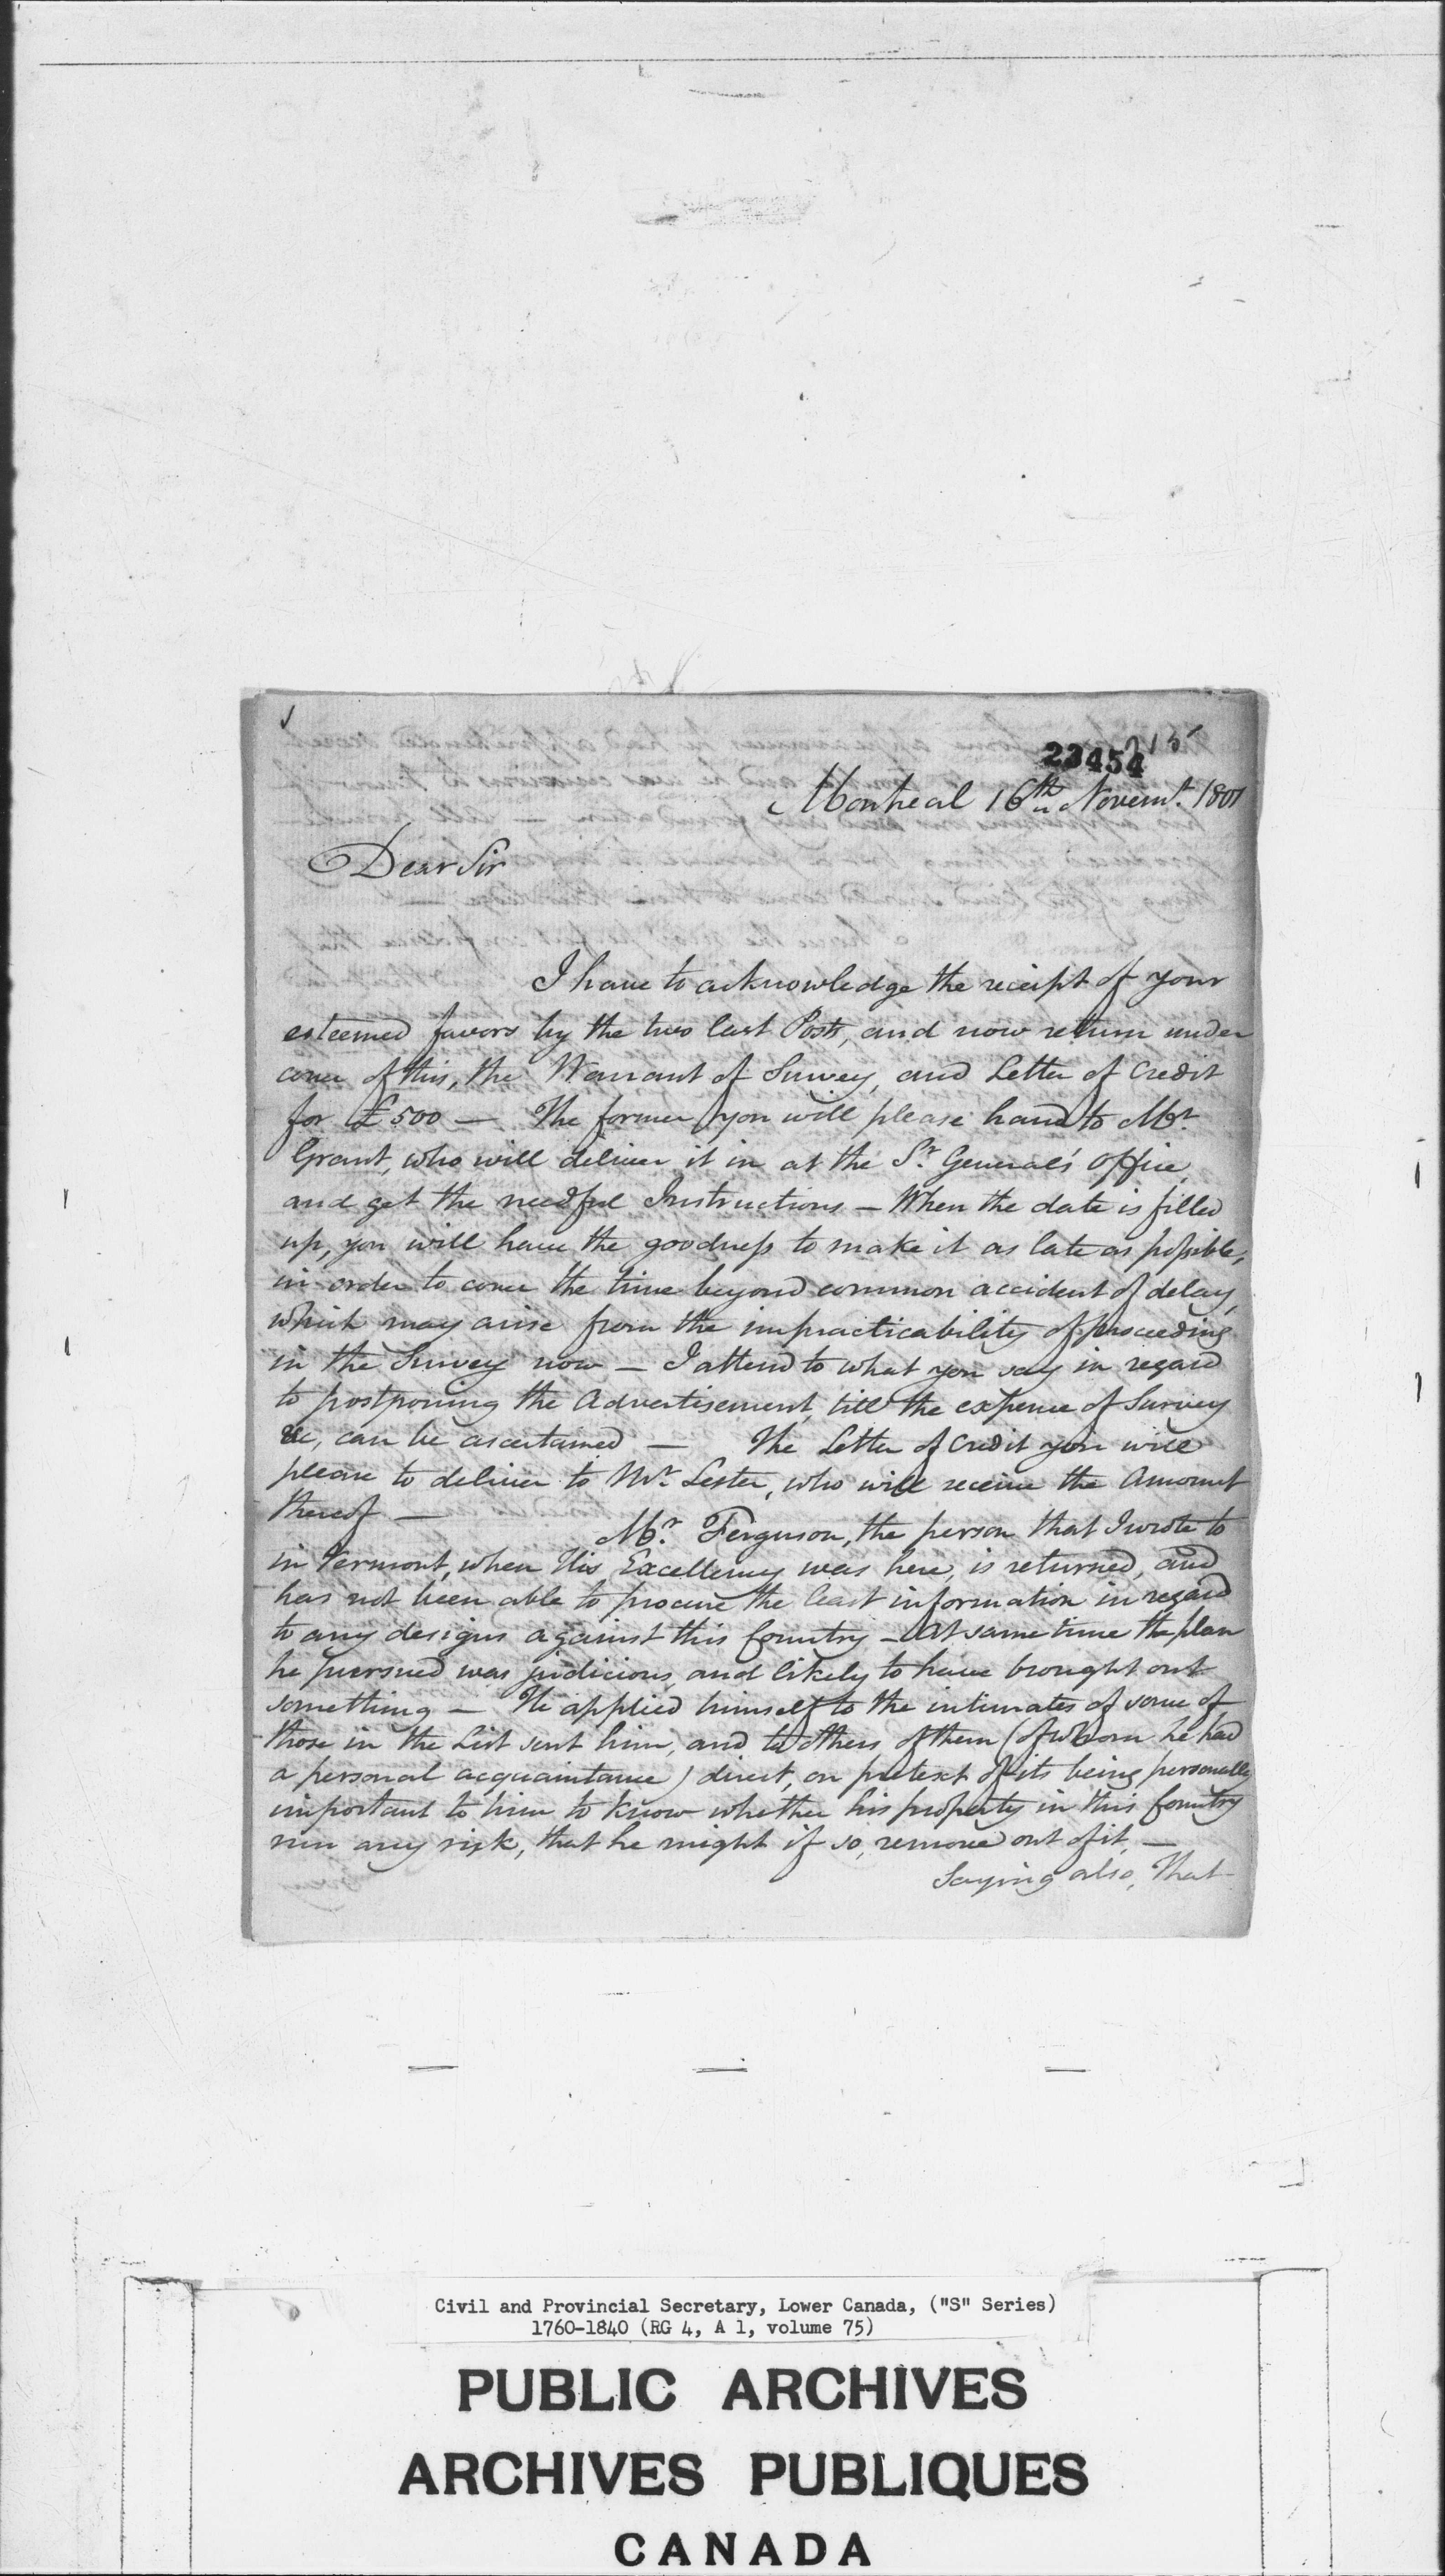 23454
215
Montreal 16th Novemr. 1801
Dear Sir
I have to acknowledge the receipt of your
esteemed favors by the two last Posts, and now return under
cover of this, the Warrant of Survey, and Letter of Credit
for £500 — The former you will please hand to Mr.
Grant, who will deliver it in at the Sr. General's Office,
and get the needful Instructions — When the date is filled
up, you will have the goodness to make it as late as possible,
in order to cover the time beyond common accident of delay,
which may arise from the impracticability of proceeding
in the Survey now — I attend to what you say in regard
to postponing the Advertisement, till the expence of Survey
&c, can be ascertained — The Letter of Credit you will
please to deliver to Mr. Lester, who will receive the Amount
thereof —
Mr. Ferguson, the person that I wrote to
in Vermont, when His Excellency was here, is returned, and
has not been able to procure the least information in regard
to any designs against this Country — At same time the plan
he pursued was judicious, and likely to have brought out
something — He applied himself to the intimates of some of
those in the List sent him, and to others of them (of whom he had
a personal acquaintance) direct, on pretext of its being personally
important to him to know whether his property in this Country
run any risk, that he might if so, remove out of it, —
Saying also, that
Civil and Provincial Secretary, Lower Canada, ("S" Series)
1760-1840 (RG 4, A 1, volume 75)
PUBLIC ARCHIVES
ARCHIVES PUBLIQUES
CANADA